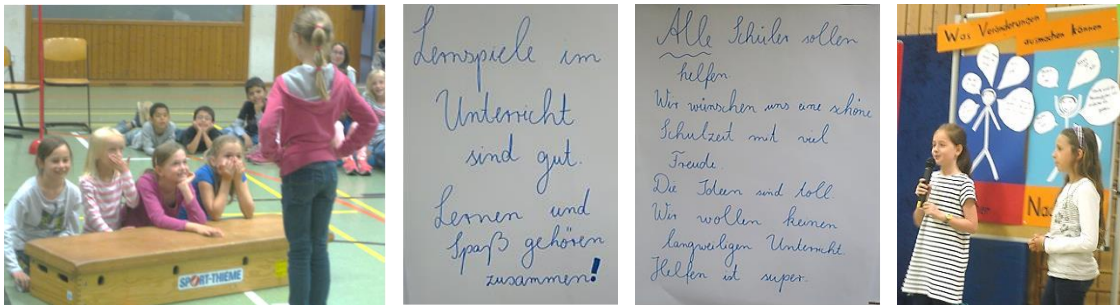 SPORT-THIEME
Lernspiele im
Unterricht
sind gut.
Lernen und
Spaß gehören
zusammen!
Alle Schüler sollen
helfen.
Wir wünschen uns eine schöne
Schulzeit mit viel
Freude.
Die Ideen sind toll.
Wir wollen keinen
langweiligen Unterricht
Helfen ist super.
Was Veränderungen
ausmachen können